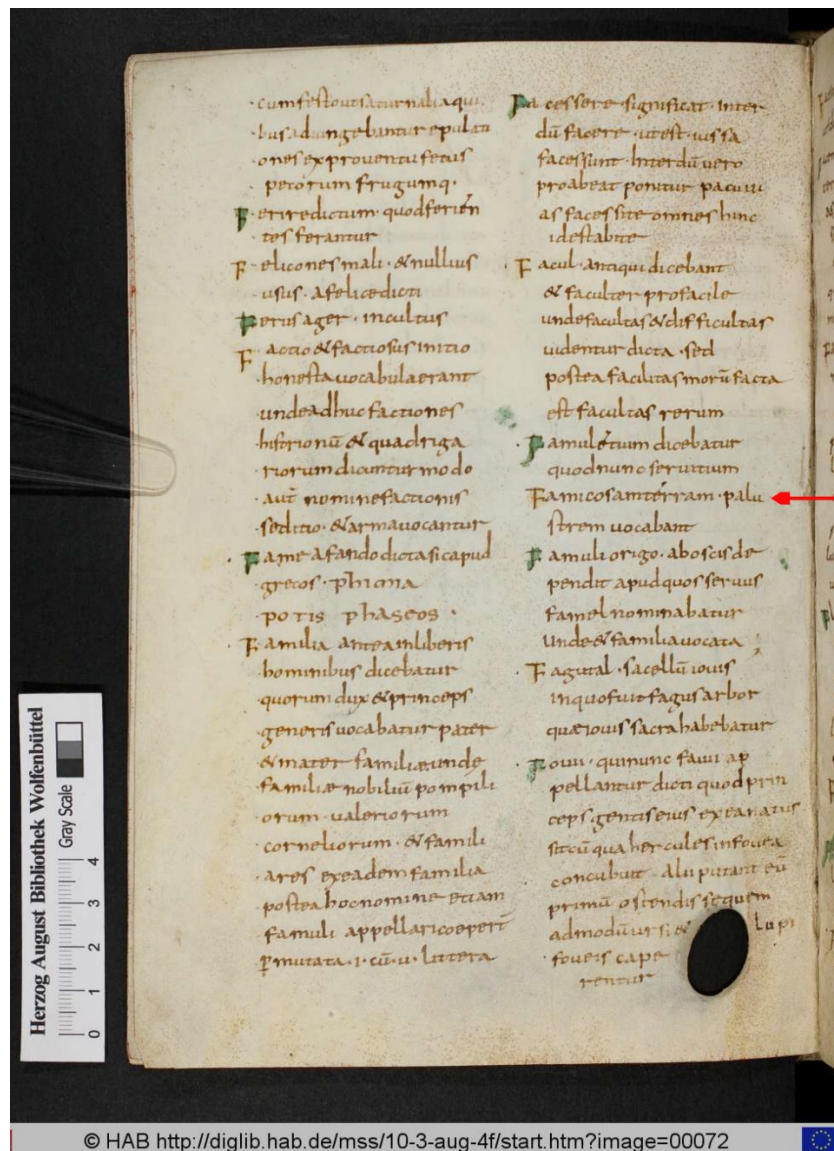 cumfestoutsaturnaliaqui
busadiungebanturepulati
onesexproventufetus
pecorum frugumq·
Ferire dictum quodferien
tes ferantur
Felicones mali · & nullius
usus · afelicedicti
Ferus ager · incultus
Factio & factiosus initio
honesta uocabulaerant
undeadhuc factiones
histrionū & quadriga
riorum dicuntur modo
aut̄ nominefactionis
seditio · & armauocantur
Fame afando dicta sicapud
grecos · phicma
potis phaseos ·
Familia antea inliberis
hominibus dicebatur
quorum dux & princeps
generis uocabatur pater
& mater familiæunde
familiæ nobiliū pompili
orum ualeriorum
corneliorum · & famili
ares exeadem familia
postea hoc nomine etiam
famuli appellari coeper̄
p̄mutata · i · cū · u · littera
Facessere significat · inter
dū facere · utest · iussa
facessunt · Interdū uero
proabeat ponitur pacuui
as facessite omnes hinc
idestabite
Facul · antiqui dicebant
& faculter profacile
undefacultas & difficultas
uidentur dicta · sed
postea facilitas morū facta
est facultas rerum
Famuletium dicebatur
quodnunc seruitium
Famicosam terram · palu
strem uocabant
Famuli origo · aboscis de
pendit apud quos seruus
famel nominabatur
Unde & familia uocata ;
Fagutal · sacellū iouis
inquofuit fagus arbor
quæiouis sacra habebatur
Foui · quinunc faui ap
pellantur dicti quod prin
ceps gentis eius exeanatus
sitcū qua hercules infouea
concubuit · Alii putant eū
primū ostendisse quem
admodū ursi & lupi
foueis cape
rentur
Herzog August Bibliothek Wolfenbüttel
Gray Scale
0 1 2 3 4
© HAB http://diglib.hab.de/mss/10-3-aug-4f/start.htm?image=00072